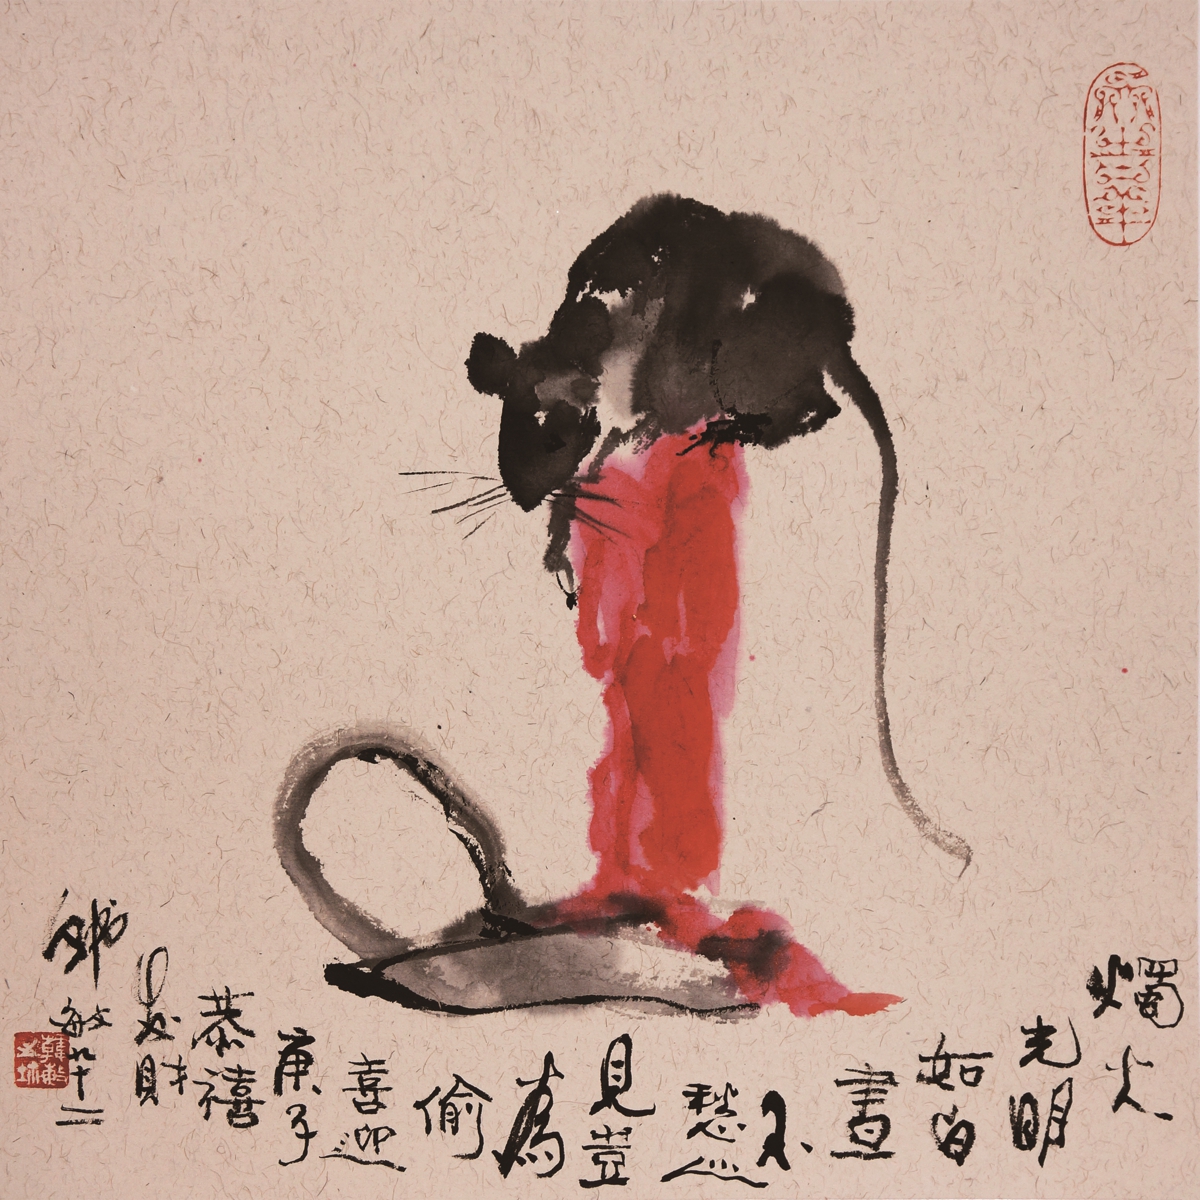 燭火
光明
如白
晝
不
愁人
見豈
為
偷
喜迎
庚子
恭禧
發財
韓敏九十二